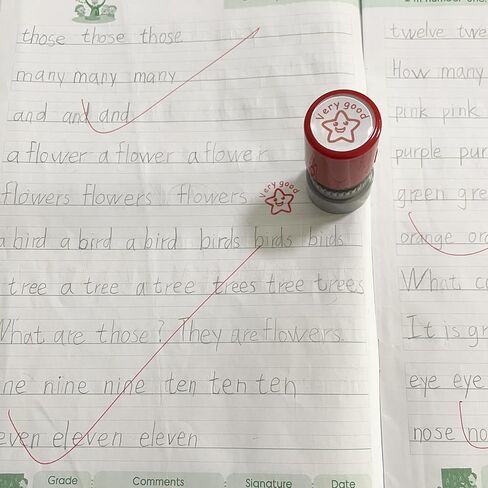 those those those
many many many
and and and
a flower a flower a flower
flowers flowers flowers
Very good
Very good
a bird a bird a bird birds birds birds
tree a tree a tree trees tree trees
What are those? They are flowers.
nine nine ten ten ten
eleven eleven
Grade Comments Signature Date
twelve
How many
pink pink
purple
green
orange
What
It is
eye eye
nose